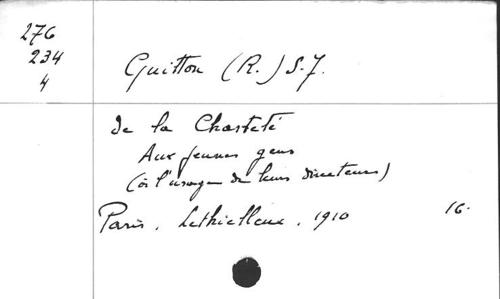 276
234
4
Guitton (R.) S.J.
De la Chasteté
Aux jeunes gens
(à l'usage de leurs directeurs)
Paris, Lethielleux, 1910 16.